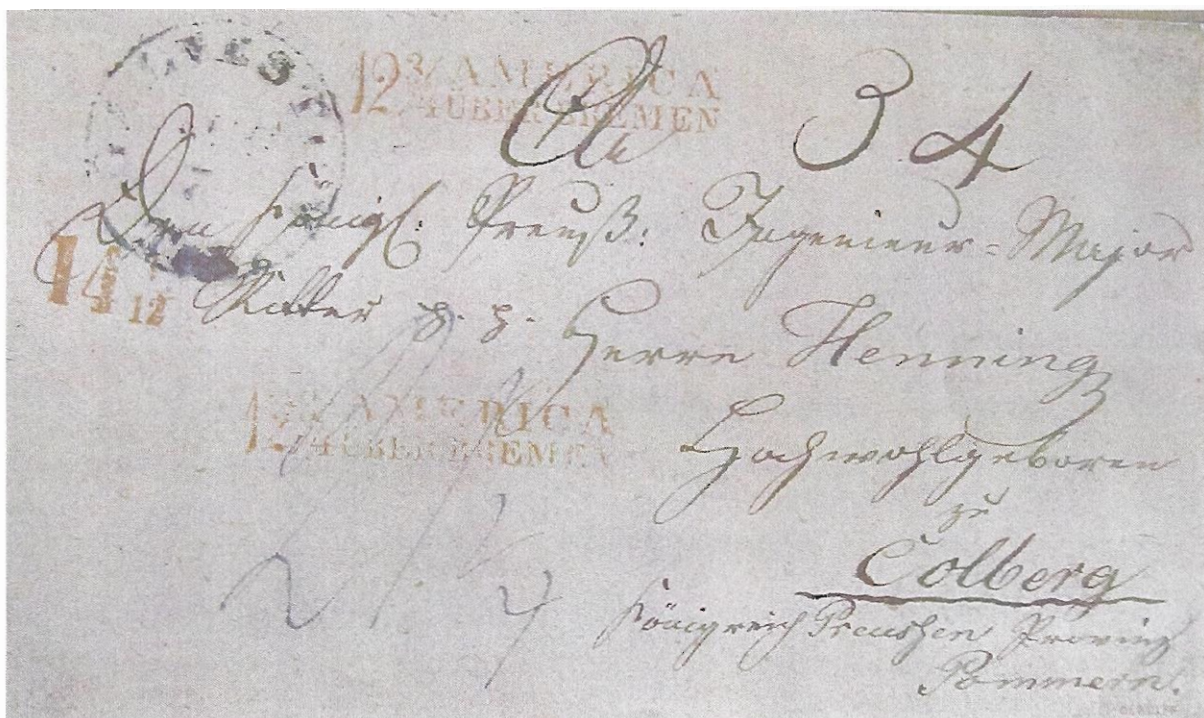 12¾ AMERICA
ÜBER BREMEN
34
Den Königl. Preuß. Ingenieur-Major
14
12
Ritter p. p. Herrn Henning
12¾ AMERICA
ÜBER BREMEN
Hochwohlgeboren
zu
Colberg
Königreich Preußen Provinz
Pommern.